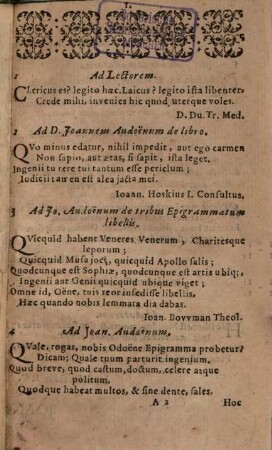 1 Ad Lectorem.
CLericus es? legito hæc. Laicus? legito ista libenter:
Crede mihi, invenies hic quod uterque voles.
D. Du. Tr. Med.
2 Ad D. Joannem Audoënum de libro.
QVo minus edatur, nihil impedit, aut ego carmen
Non sapio, aut ætas, si sapit, ista leget.
Ingenii tu rere tui tantum esse periclum;
Iudicii tamen est alea jacta mei.
Ioann. Hoskius I. Consultus.
3 Ad Jo. Audoënum de tribus Epigrammatum
libellis.
QVicquid habent Veneres Venerum, Charitesque
leporum;
Quicquid Musa joci, quicquid Apollo salis;
Quodcunque est Sophiæ, quodcunque est artis ubiq;,
Ingenii aut Genii quicquid ubique viget;
Omne id, Oëne, tuis reor insedisse libellis,
Hæc quando nobis lemmata dia dabas.
Ioan. Bovvman Theol.
4 Ad Joan. Audoënum.
QVale, rogas, nobis Odoëne Epigramma probetur?
Dicam; Quale tuum parturit ingenium.
Quod breve, quod castum, doctum, celere atque
politum.
Quodque habeat multos, & sine dente, sales.
A 2 Hoc